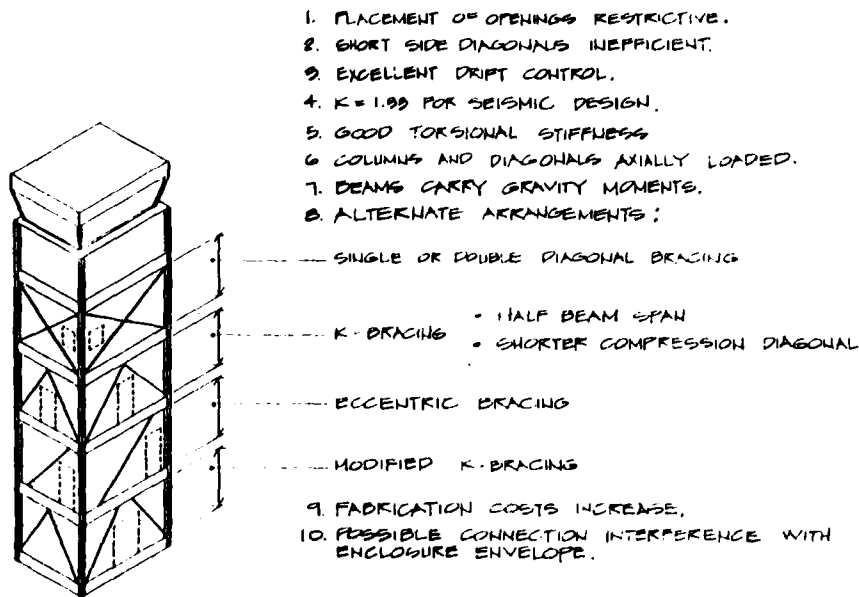 1. PLACEMENT OF OPENINGS RESTRICTIVE.
2. SHORT SIDE DIAGONALS INEFFICIENT.
3. EXCELLENT DRIFT CONTROL.
4. K = 1.33 FOR SEISMIC DESIGN.
5. GOOD TORSIONAL STIFFNESS
6 COLUMNS AND DIAGONALS AXIALLY LOADED.
7. BEAMS CARRY GRAVITY MOMENTS.
8. ALTERNATE ARRANGEMENTS:
SINGLE OR DOUBLE DIAGONAL BRACING
K-BRACING
• HALF BEAM SPAN
• SHORTER COMPRESSION DIAGONAL
ECCENTRIC BRACING
MODIFIED K-BRACING
9. FABRICATION COSTS INCREASE.
10. POSSIBLE CONNECTION INTERFERENCE WITH
ENCLOSURE ENVELOPE.